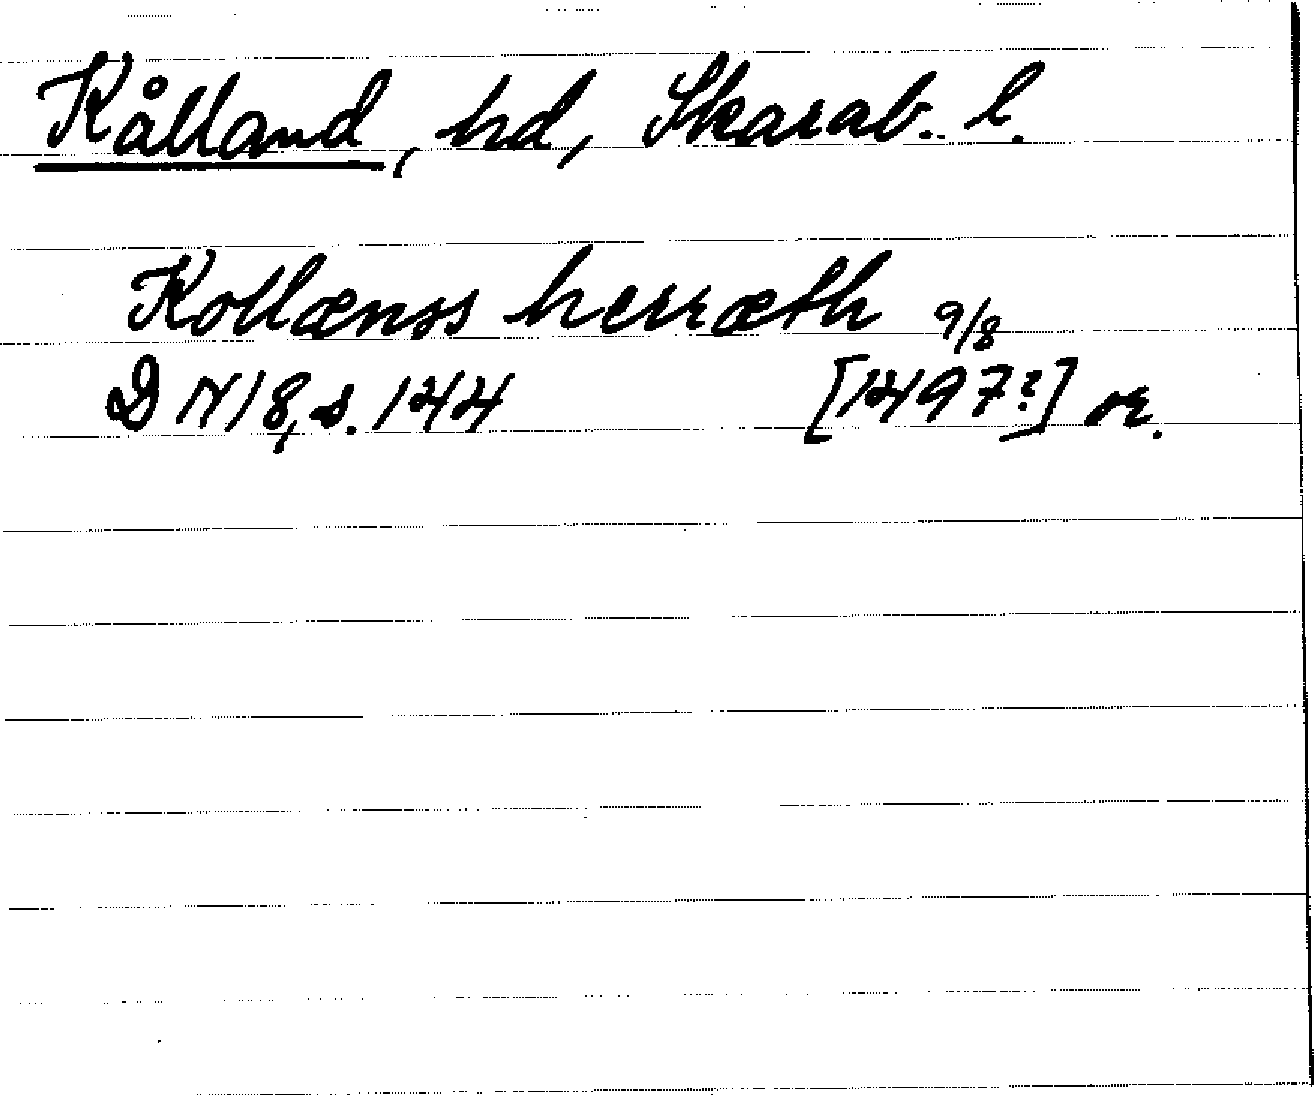 Kålland, hd, Skarab. l.
Kollænss herræth 9/8
DN 18, s. 144 [1497?] or.